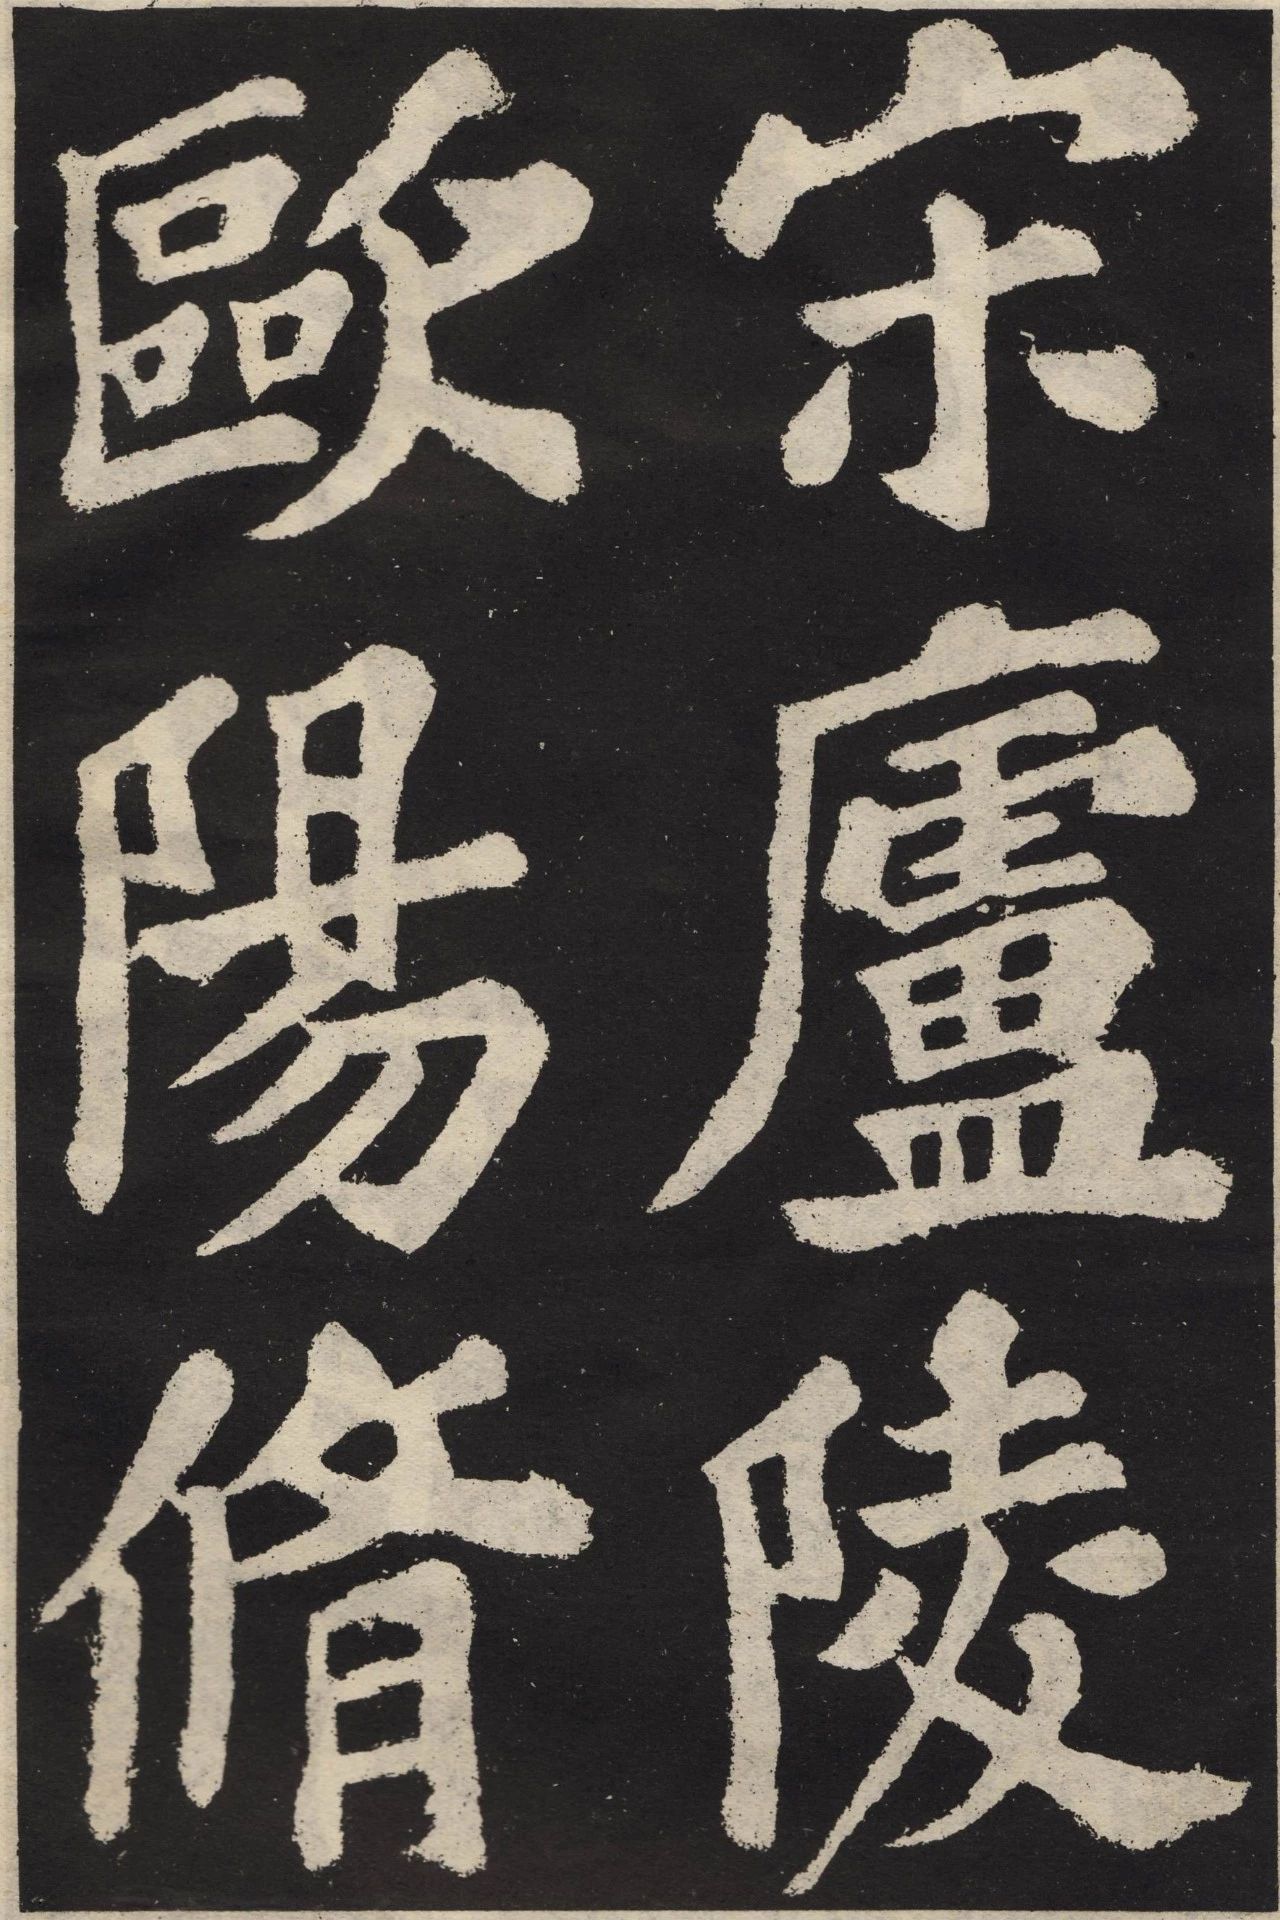 宋廬陵
歐陽脩